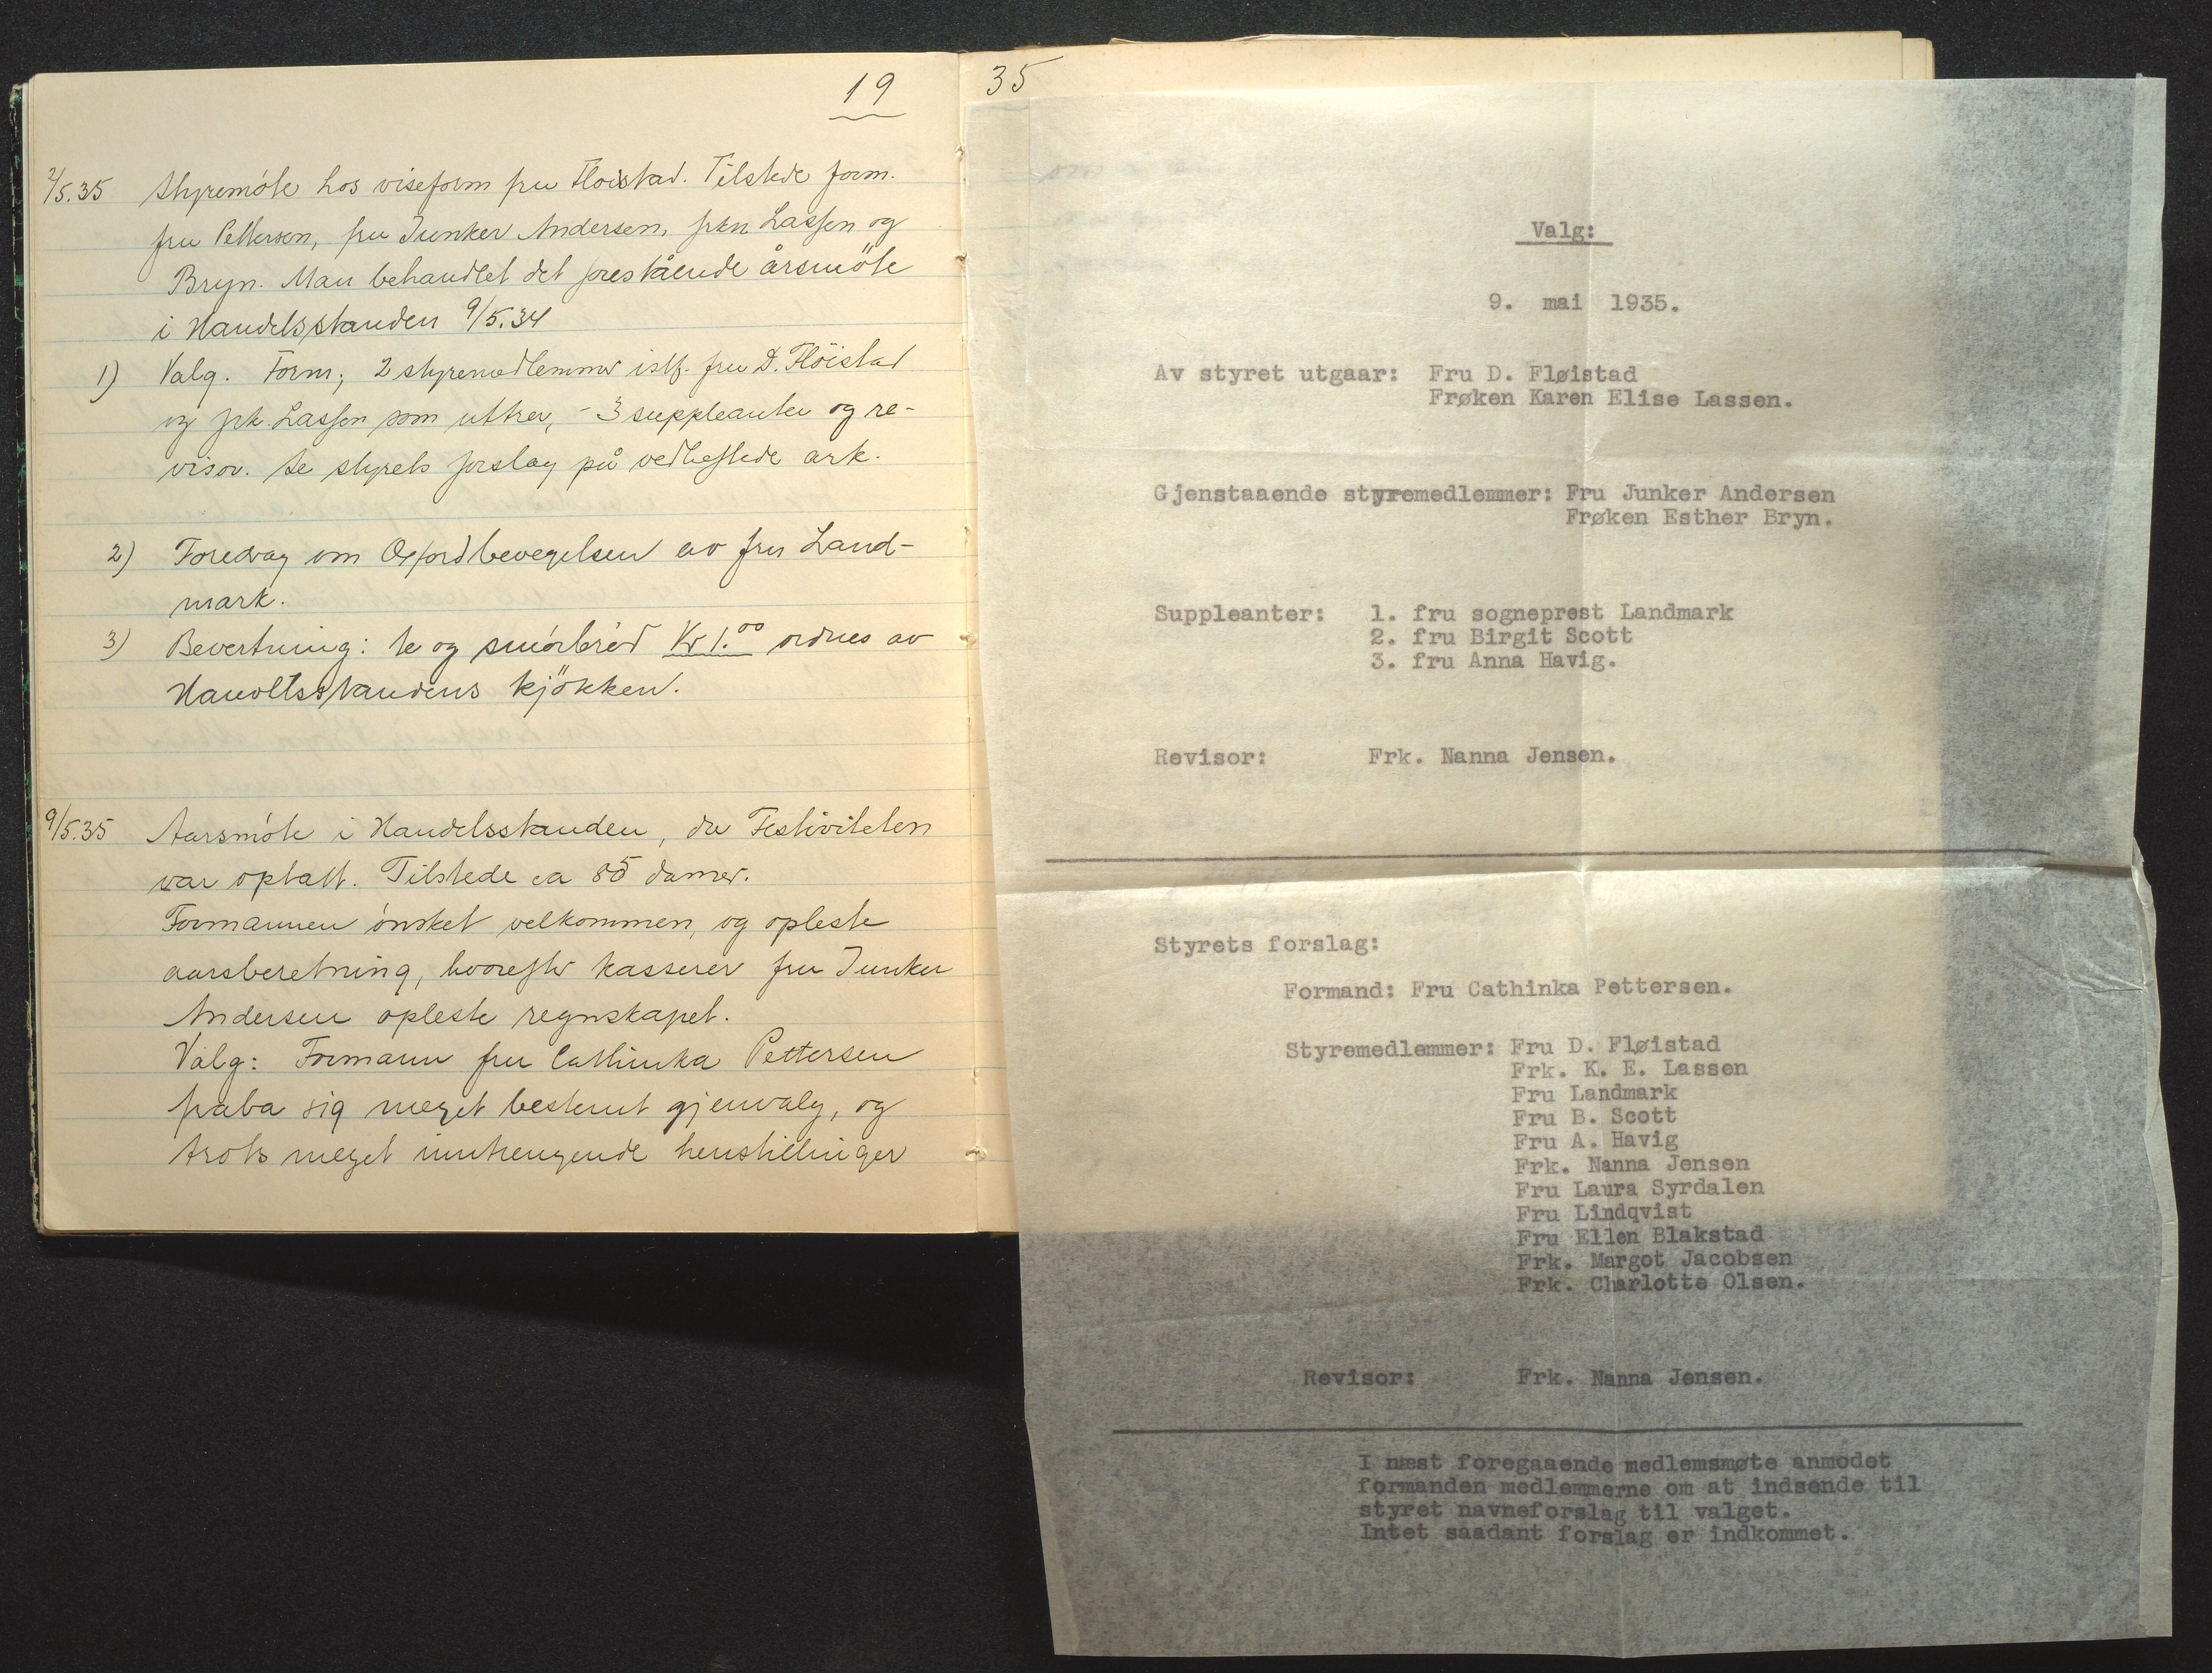 19
2/5.35 Styremöte hos viseform fru Floistad. Tilstede form.
fru Pettersen, fru Junker Andersen, frkn Lassen og
Bryn. Man behandlet det forestående årsmöte
i Handelsstanden 9/5.34
1) Valg. Form; 2 styremedlemmer istf. fru D. Flöistad
og frk. Lassen som uttrer, - 3 suppleanter og re-
visor. Se styrets forslag på vedheftede ark.
2) Foredrag om Oxfordbevegelsen av fru Land-
mark.
3) Bevertning: te og smörbröd Kr 1.00 ordnes av
Handelsstandens kjökken.
9/5.35 Aarsmöte i Handelsstanden, da Festiviteten
var optatt. Tilstede ca 85 damer.
Formannen ønsket velkommen, og opleste
aarsberetning, hvorefter kasserer fru Junker
Andersen opleste regnskapet.
Valg: Formann fru Cathinka Pettersen
fraba sig meget bestemt gjenvalg, og
trots meget inntrengende henstillinger
35
Valg:
9. mai 1935.
Av styret utgaar: Fru D. Fløistad
Frøken Karen Elise Lassen.
Gjenstaaende styremedlemmer: Fru Junker Andersen
Frøken Esther Bryn.
Suppleanter: 1. fru sogneprest Landmark
2. fru Birgit Scott
3. fru Anna Havig.
Revisor: Frk. Nanna Jensen.
Styrets forslag:
Formand: Fru Cathinka Pettersen.
Styremedlemmer: Fru D. Fløistad
Frk. K. E. Lassen
Fru Landmark
Fru B. Scott
Fru A. Havig
Frk. Nanna Jensen
Fru Laura Syrdalen
Fru Lindqvist
Fru Ellen Blakstad
Frk. Margot Jacobsen
Frk. Charlotte Olsen.
Revisor: Frk. Nanna Jensen.
I næst foregaaende medlemsmøte anmodet
formanden medlemmerne om at indsende til
styret navneforslag til valget.
Intet saadant forslag er indkommet.